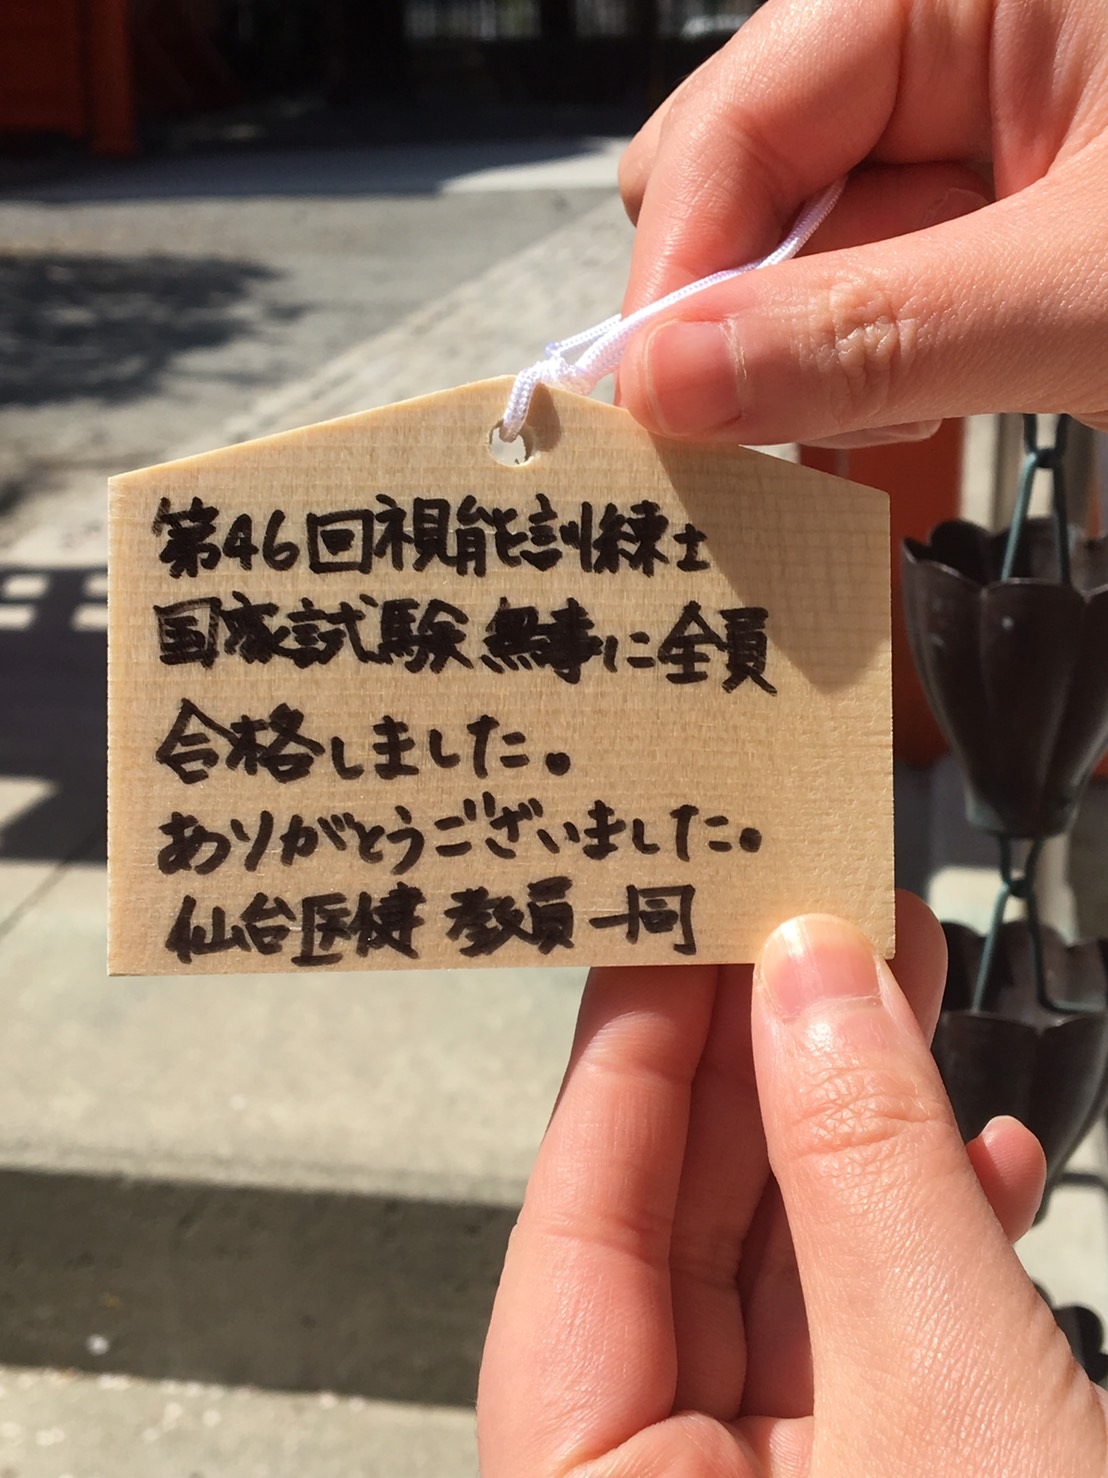 第46回視能訓練士
国家試験 無事に全員
合格しました。
ありがとうございました。
仙台医健 教員一同